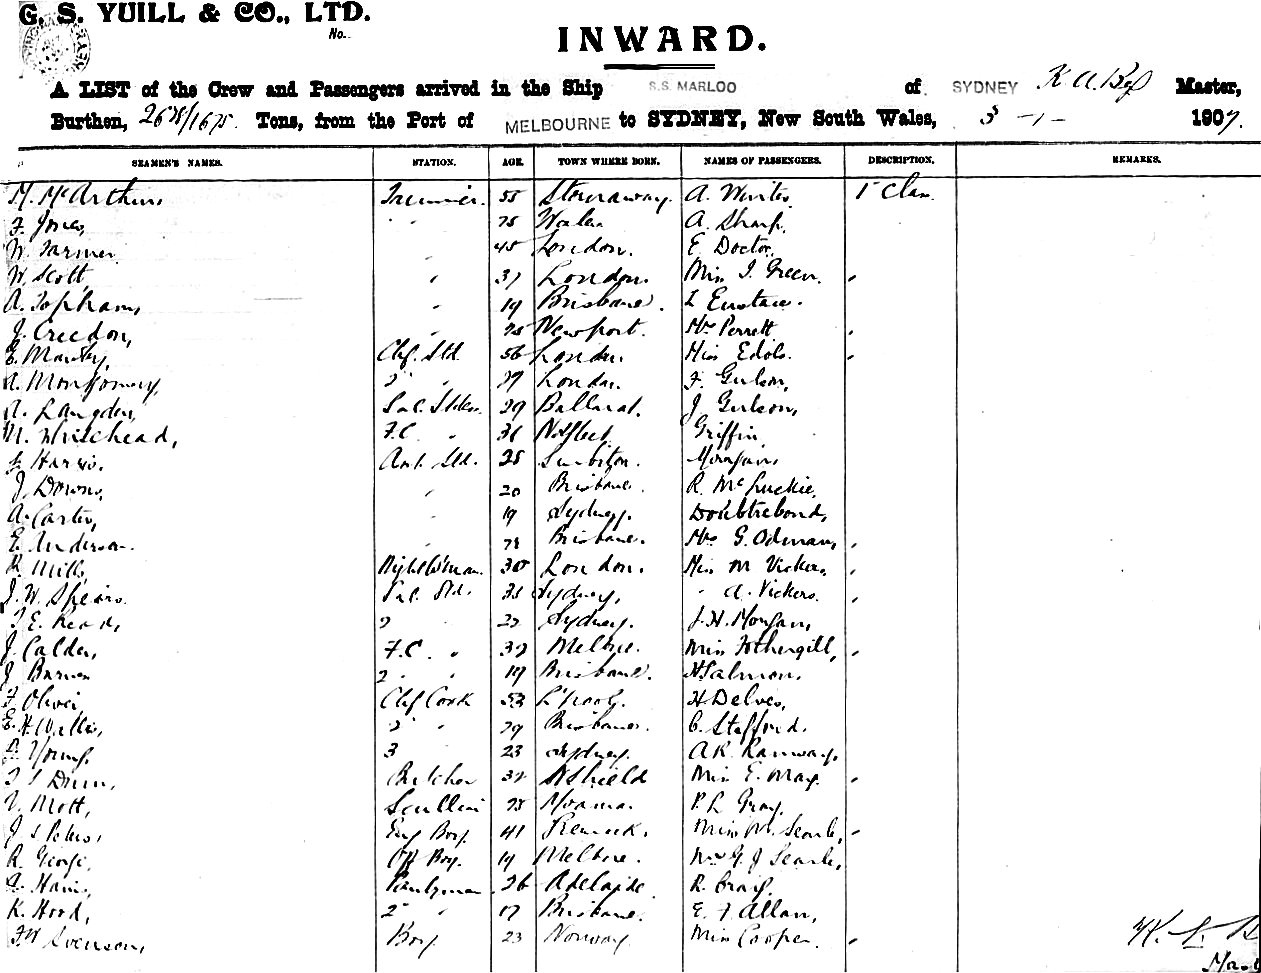 G. S. YUILL & CO., LTD.
No.
INWARD.
A LIST of the Crew and Passengers arrived in the Ship S.S. MARLOO of SYDNEY Master,
Burthen, 2628/1675 Tons, from the Port of MELBOURNE to SYDNEY, New South Wales, 3 -1- 1907.
SEAMEN'S NAMES. STATION. AGE. TOWN WHERE BORN. NAMES OF PASSENGERS. DESCRIPTION. REMARKS.
M. McArthur, Trimmer. 55 Stornaway. A. Winter. 1st Class
F. Jones, " " 25 Wales A. Sharp.
W. Farmer. " 45 London. E. Doctor.
W. Scott, " 37 London. Miss I. Green. "
A. Topham, " 19 Brisbane. L Eustace.
J. Creedon, " 25 Newport. Mrs Perrett "
E. Manby, Chf. Std. 56 London. Miss Edols. "
A. Montgomery, 2 " 29 London. F. Gulson,
A. Langdon, Sal. Stdess. 29 Ballarat. J. Gulson,
M. Whitehead, F.C. " 36 Griffin,
J. Harris. Ast. Std. 25 Surbiton. Morgan,
J. Downs, " 20 Brisbane. R. McLuckie,
A. Carter, " 19 Sydney. Doubtrebond,
E. Anderson. " 28 Brisbane. Mrs G. Odman, "
R. Mills, Nightwman. 30 London. Miss M Vickers, "
J. W. Spears. Sal. Std. 35 Sydney, " A. Vickers. "
T. E. Read, 2 " 22 Sydney. J. H. Morgan,
J. Calder, F.C. " 32 Melbne. Miss Fothergill, "
J Barnes 2 " " 19 Brisbane. H Salmon,
F. Oliver, Chf Cook 53 L'pool. H Delves,
E. H. Willis, 2 " 29 Brisbane. C. Stafford.
Young, 3 " 23 Sydney. A R. Ranway,
Dunn, Butcher 32 N Shield Miss E. May. "
V. Mott, Scullion 25 Moama. P. L Gray,
J. S. Peters, Eng Boy. 41 Miss M. Searle, "
R. George, Off Boy. 19 Melbne. Mr G. J Searle,
Hain, Pantryman 26 Adelaide. R. Craig,
K. Hood, 2 " 17 Brisbane. E. F. Allan,
F. W Svenson, Boy. 23 Norway. Miss Cooper. "